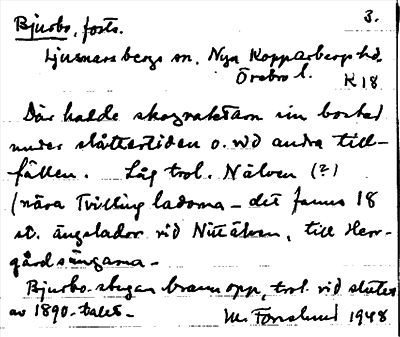 Bjurbo, forts. 3.
Ljusnarsbergs sn, Nya Kopparbergs hd.
Örebro l. K18
Där hade skogvaktarn sin bostad
under slåttertiden o. vid andra till-
fällen. Låg trol. Nälven (?)
(nära Tvillingladorna - det fanns 18
st. ängslador vid Nittälven, till Herr-
gårdsängarna -
Bjurbo-stugan brann opp, trol. vid slutet
av 1890-talet -
M. Forslund 1948